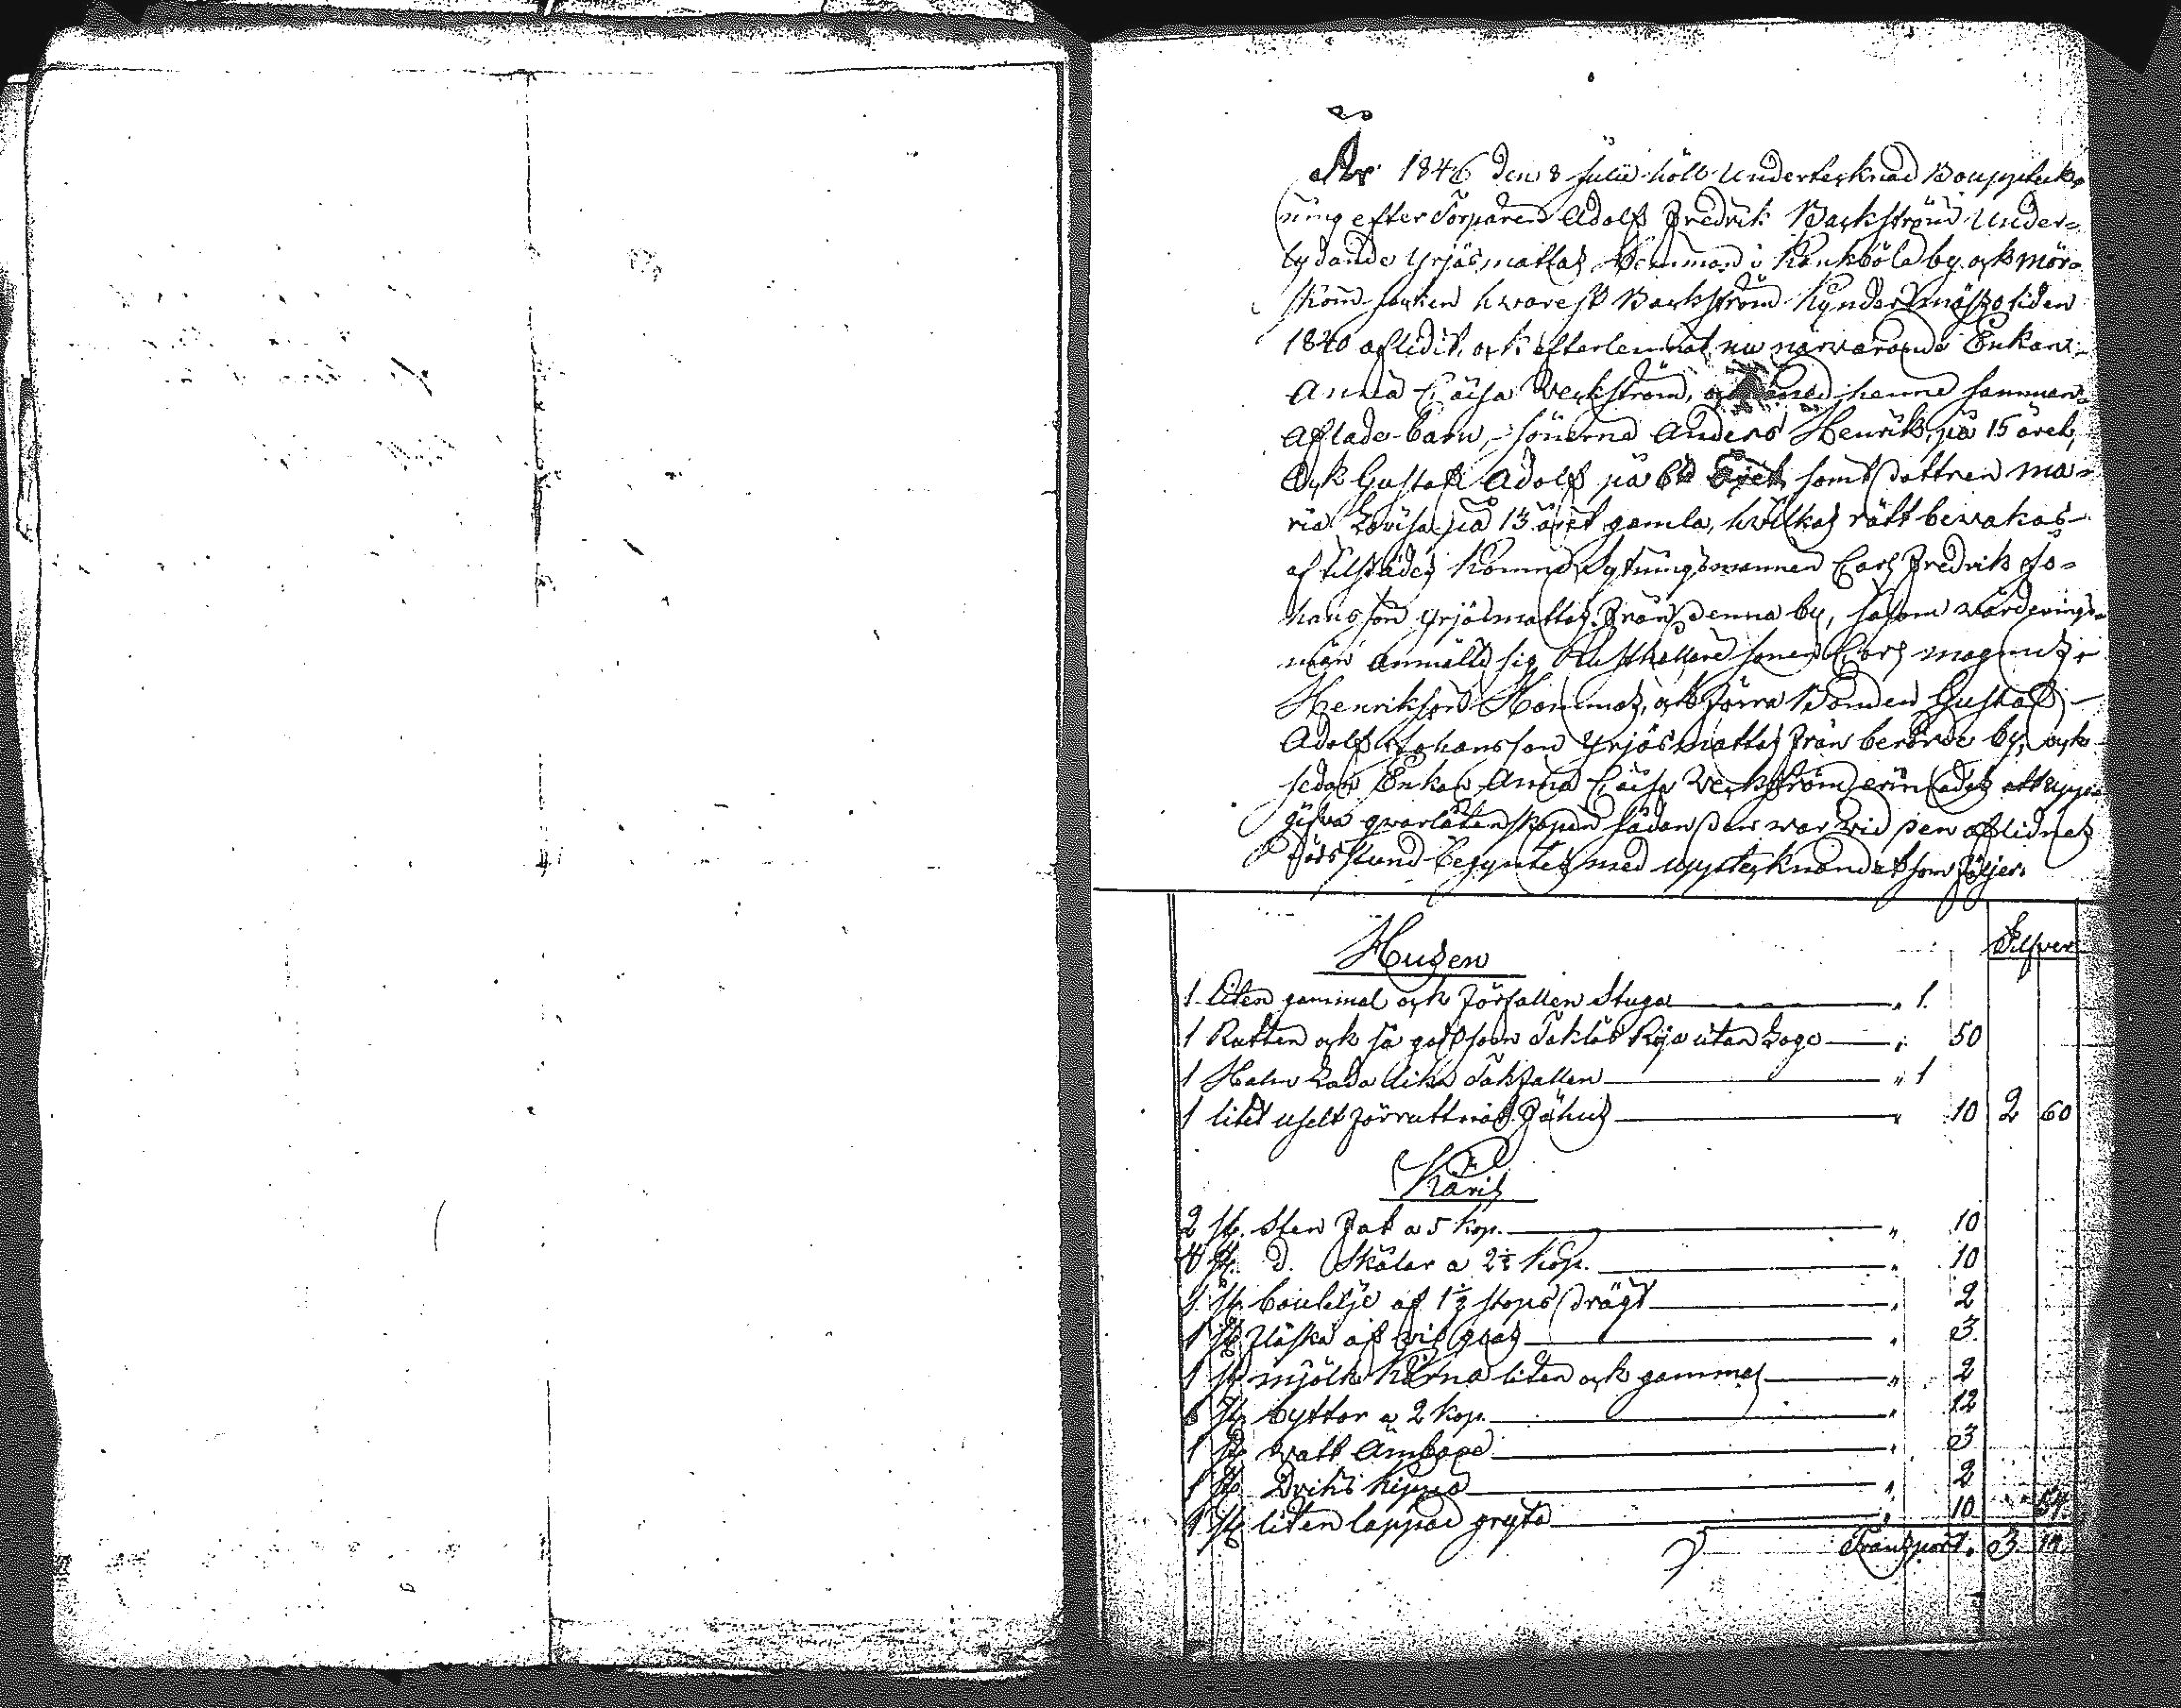 År 1846 den 8 Julii höll Undertecknad Bouppteck-
ning efter Torparen Adolf Fredrik Backström Under-
lydande Yrjäsmattas Hemman i Kankböla by och Mör-
skom socken hvarest Backström Kyndersmässo tiden
1840 aflidit, och efterlemnat nu närvarande Enkan
Anna Caisa Veckström, och med henne samman-
aflade barn, sönerna Anders Henrik, på 15 året,
och Gustaf Adolf på 6te året samt dottren Ma-
ria Lovisa på 13 året gamla, hvilkas rätt bevakas
af tilstädes komne Sytningsmannen Carl Fredrik Jo-
hansson Yrjäsmattas från denna by, såsom värderings-
män anmälte sig Rusthållare sonen Carl Magnus
Henriksson Hommas, och förra Bonden Gustaf
Adolf Johansson Yrjäsmattas från berörde by, och
sedan Enkan Anna Caisa Veckström erinrades att upp-
gifva qvarlåtenskapen sådan den var vid den aflidnes
dödsstund begyntes med upptecknandet som följer.
Husen
Silfver
1 liten gammal och förfallen Stuga " 1.
1 Rutten och så godt som Taklös Ria utan Loge " 50
1 Halm Lada lika Takfallen " 1
1 litet uselt förruttnat Fähus " 10 2 60
Käril
2 st. Sten Fat a 5 kop. " 10
4 st. d. Skålar a 2½ kop. " 10
1 st. boutelje af 1½ stops drägt " 2
1 st flaska af vit glas " 3
1 st mjölk Kärna liten och gammal " 2
6 st byttor a 2 kop. " 12
1 st vatt Ämbare " 3
1 st Dricks kippa " 2
1 st liten lappad gryta " 10 54.
Transport. 3 14.